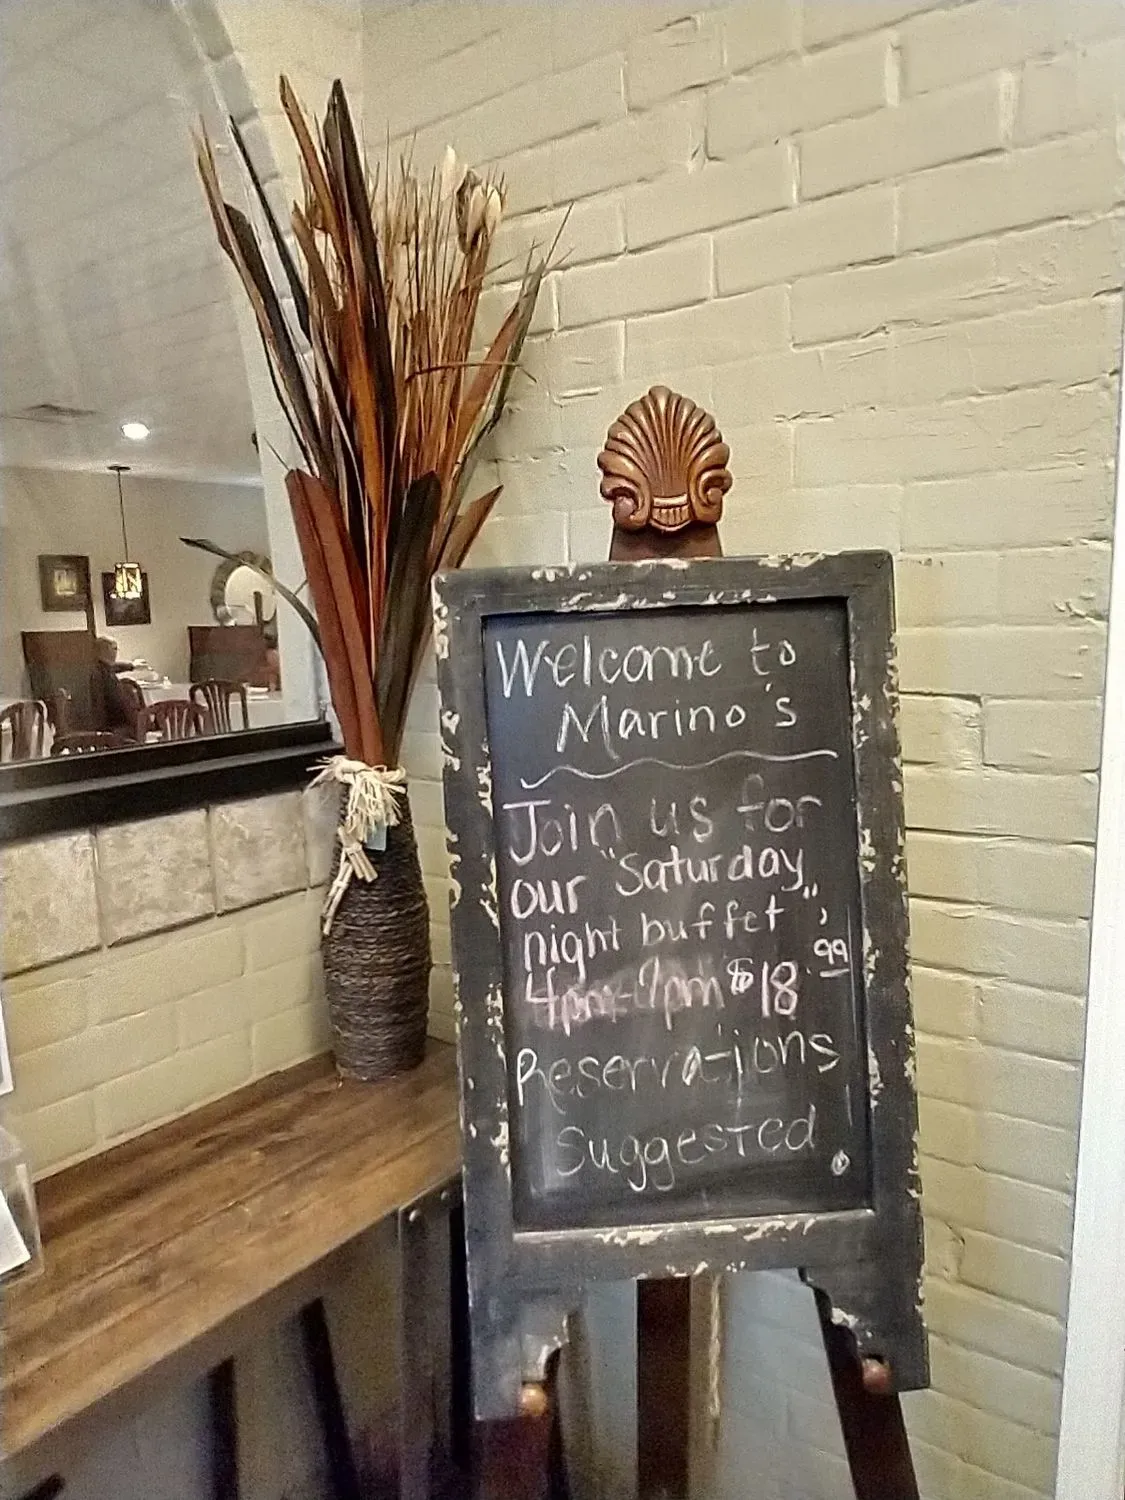 Welcome to
Marino's
Join us for
our "Saturday
night buffet",
4pm-9pm $18.99
Reservations
suggested.